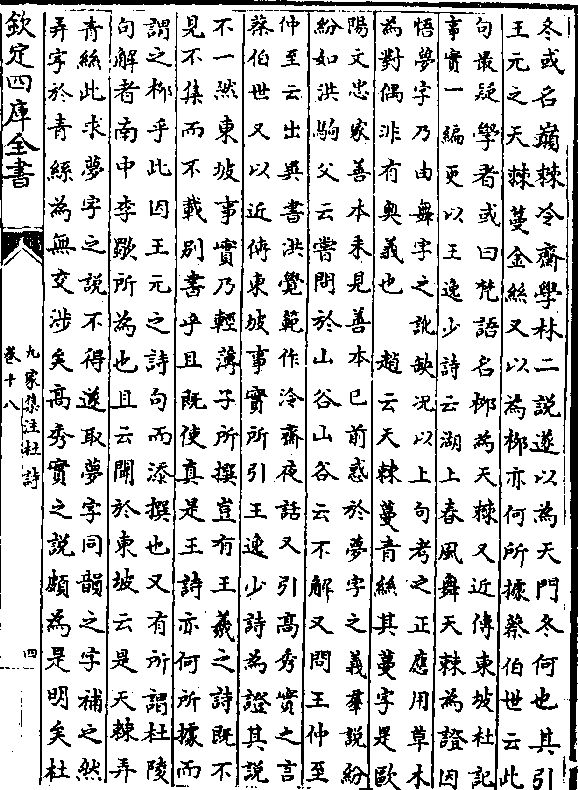 冬或名巔棘冷齋學林二説遂以為天門冬何也其引
王元之天棘蔓金絲又以為柳亦何所據蔡伯世云此
句最疑學者或曰梵語名柳為天棘又近傳東坡杜記
事實一編更以王逸少詩云湖上春風舞天棘為證因
悟夢字乃由舞字之訛缺况以上句考之正應用草木
為對偶非有奥義也　趙云天棘蔓青絲其蔓字是歐
陽文忠家善本未見善本已前惑於夢字之義羣説紛
紛如洪駒父云嘗問於山谷山谷云不解又問王仲至
仲至云出異書洪覺範作冷齋夜話又引髙秀實之言
蔡伯世又以近傳東坡事實所引王逸少詩為證其説
不一然東坡事實乃輕薄子所撰豈有王羲之詩既不
見不集而不載别書乎且既使真是王詩亦何所據而
謂之栁乎此因王元之詩句而添撰也又有所謂杜陵
句解者南中李歜所為也且云聞於東坡云是天棘弄
青絲此求夢字之説不得遂取夢字同韻之字補之然
弄字於青絲為無交涉矣髙秀實之説頗為是明矣杜
欽定四庫全書
九家集注杜詩
卷十八
四